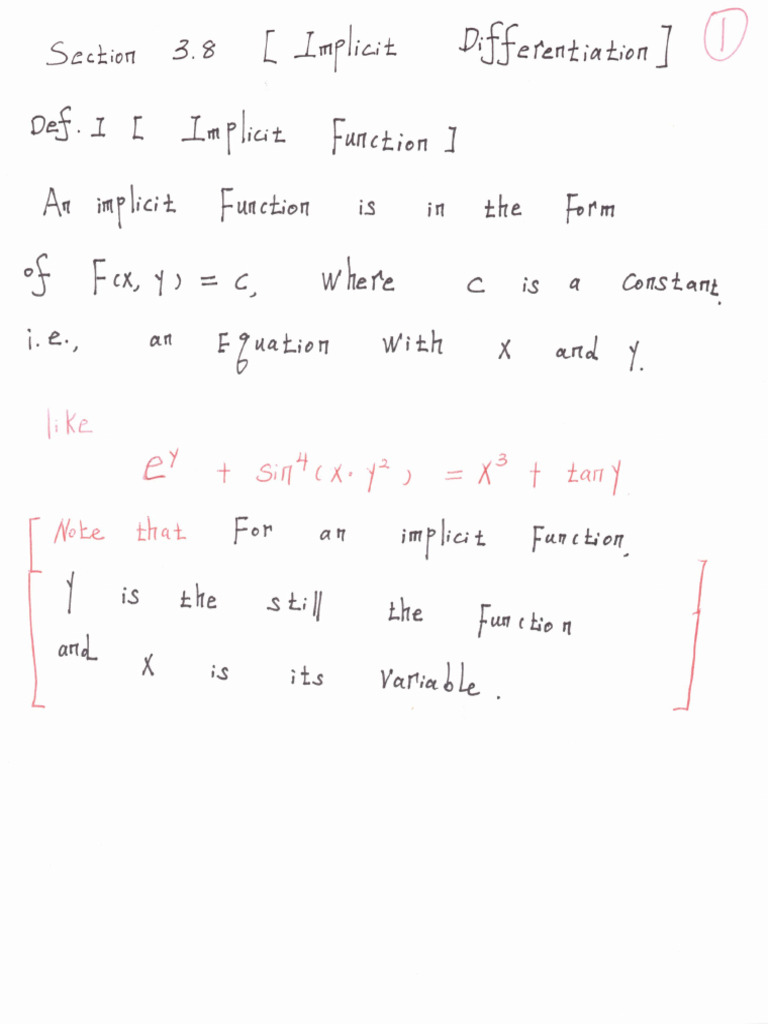 Section 3.8 [ Implicit Differentiation ] 1
Def. I [ Implicit Function ]
An implicit Function is in the Form
of F(x, y) = c, where c is a constant.
i.e., an Equation with x and y.
like
e^y + sin^4(x·y^2) = x^3 + tan y
[ Note that For an implicit Function,
y is the still the Function
and x is its variable. ]